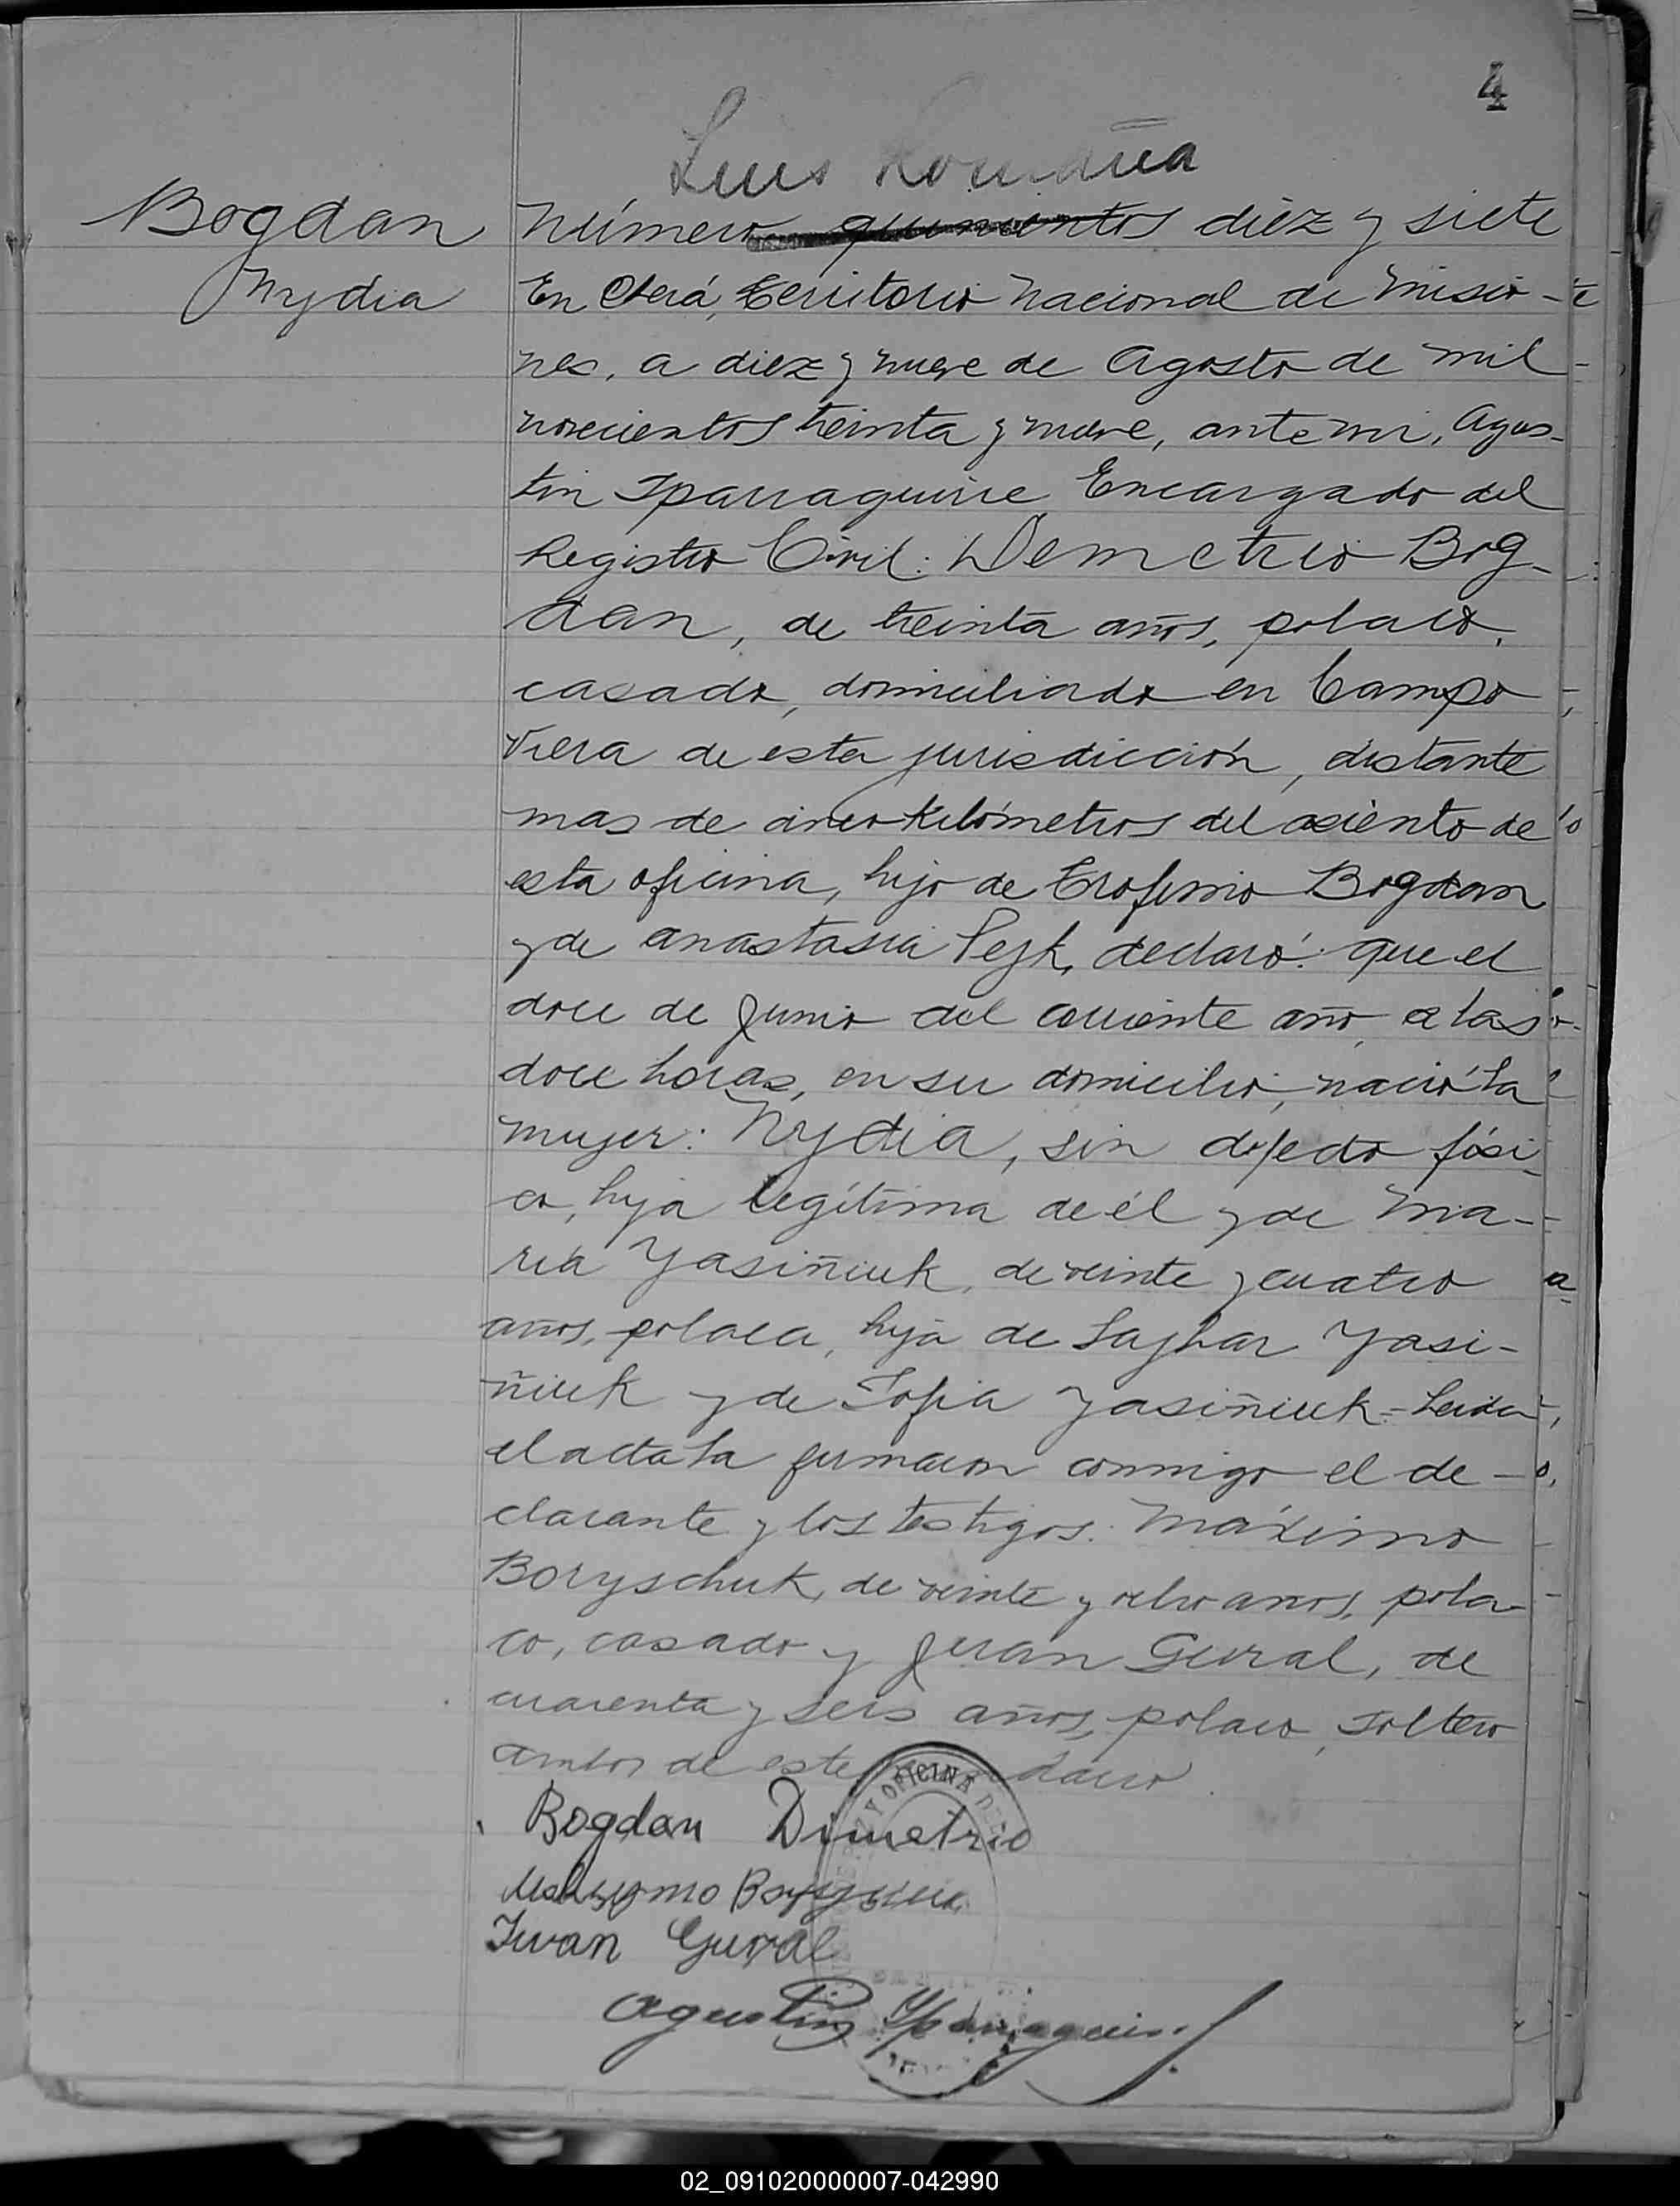 4
Luis Romaña
Bogdan
Nydia
Número quinientos diez y siete
En Oberá, Territorio Nacional de Misio-
nes, a diez y nueve de Agosto de mil
novecientos treinta y nueve, ante mi, Agus-
tin Iparraguirre Encargado del
Registro Civil: Demetrio Bog-
dan, de treinta años, polaco,
casado, domiciliado en Campo
Viera de esta jurisdicción, distante
mas de cinco kilómetros del asiento de
esta oficina, hijo de Trofimio Bogdan
y de Anastasia, declaró: que el
doce de Junio del corriente año, a las
doce horas, en su domicilio, nació la
mujer: Nydia, sin defecto físi-
co, hija legítima de él y de Ma-
ria Yasiñiuk, de veinte y cuatro
años, polaca, hija de Yasi-
ñiuk y de Sofia Yasiñiuk = Leida
el acta la firmaron conmigo el de-
clarante y los testigos: Máximo
Boryschuk, de veinte y ocho años, pola-
co, casado y Juan Gural, de
cuarenta y seis años, polaco, soltero
ambos de este
Y OFICINA DE
Bogdan Dimetrio
Iwan Gural
Agustin Iparraguirre
02_091020000007-042990